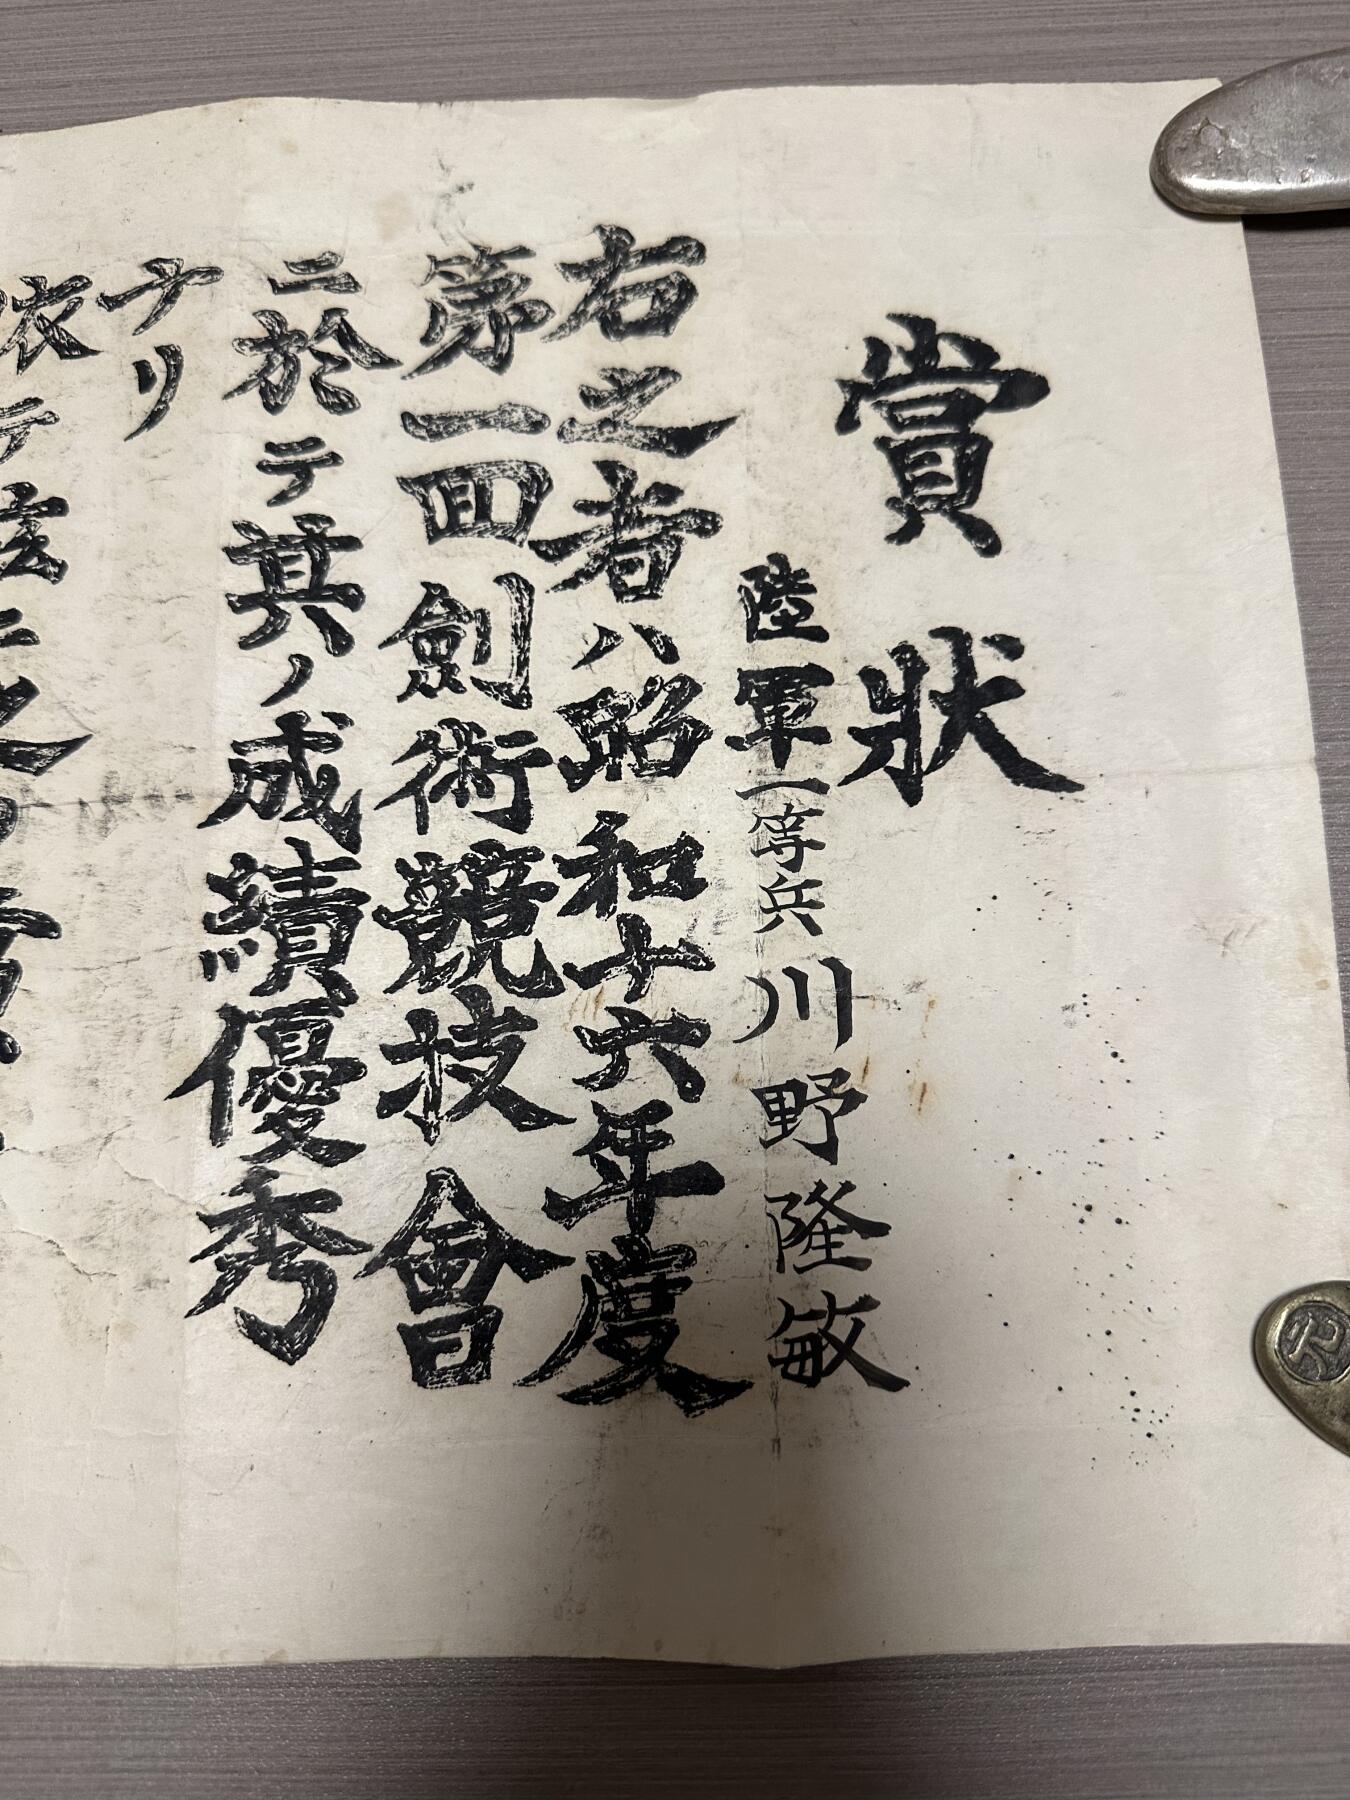 賞狀
陸軍一等兵 川野隆敏
右之者ハ昭和十六年度
第一回劍術競技會
ニ於テ其ノ成績優秀
ナリ
依テ玆ニ之ヲ賞ス
元